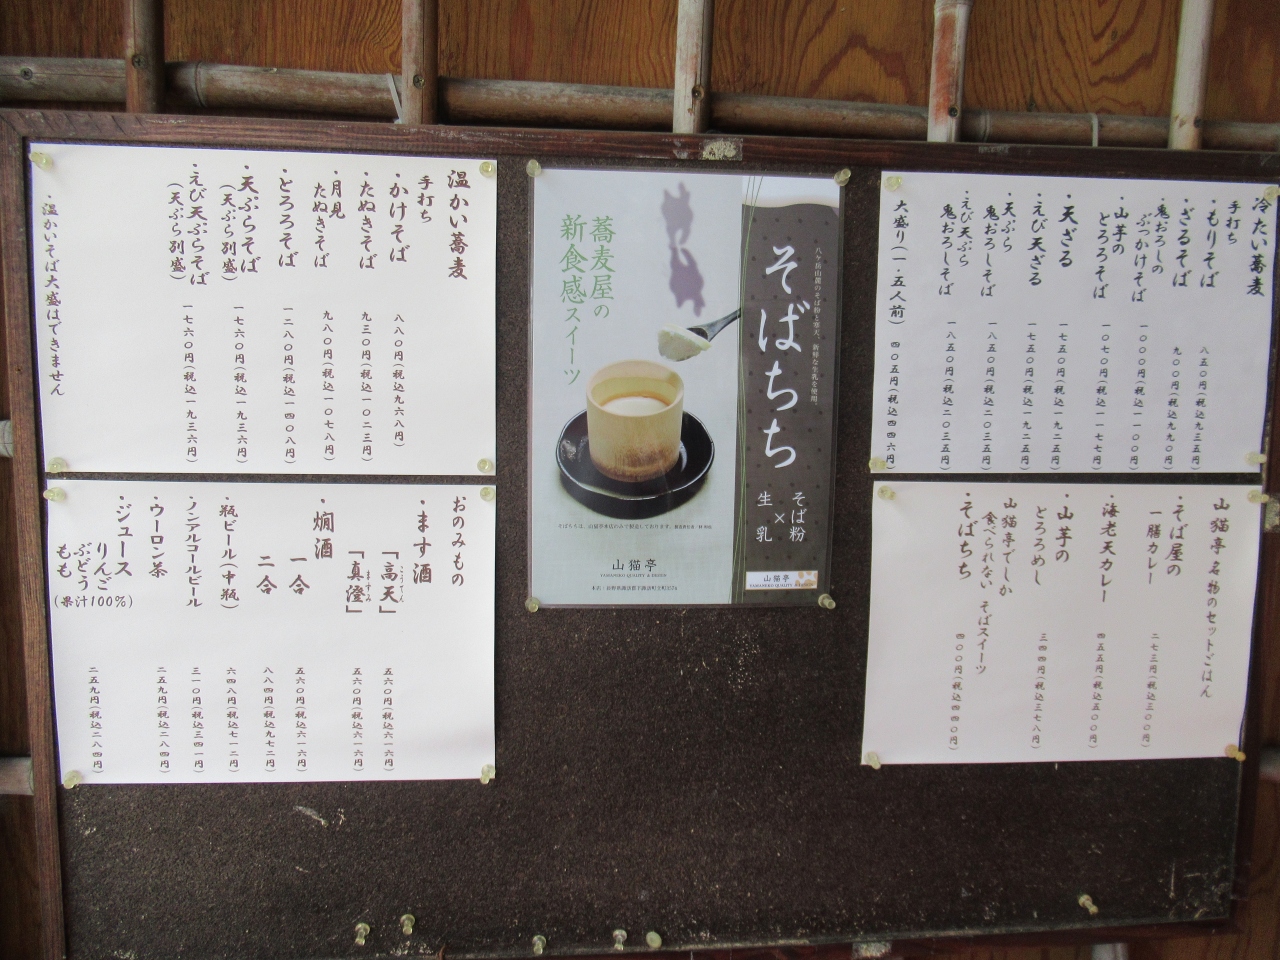 冷たい蕎麦
手打ち
・もりそば 八五〇円(税込九三五円)
・ざるそば 九〇〇円(税込九九〇円)
・鬼おろしの
ぶっかけそば 一〇〇〇円(税込一一〇〇円)
・山芋の
とろろそば 一〇七〇円(税込一一七七円)
・天ざる 一七五〇円(税込一九二五円)
・えび天ざる 一七五〇円(税込一九二五円)
・天ぷら
鬼おろしそば 一八五〇円(税込二〇三五円)
・えび天ぷら
鬼おろしそば 一八五〇円(税込二〇三五円)
大盛り(一・五人前) 四〇五円(税込四四六円)
山猫亭名物のセットごはん
・そば屋の
一膳カレー 二七三円(税込三〇〇円)
・海老天カレー 四五五円(税込五〇〇円)
・山芋の
とろろめし 三四四円(税込三七八円)
山猫亭でしか
食べられない そばスイーツ
・そばちち 四〇〇円(税込四四〇円)
八ヶ岳山麓のそば粉と寒天、新鮮な生乳を使用。
そばちち
そば粉
×
生乳
蕎麦屋の
新食感スイーツ
山猫亭
YAMANEKO QUALITY & DESIGN
山猫亭
YAMANEKO QUALITY & DESIGN
温かい蕎麦
手打ち
・かけそば 八八〇円(税込九六八円)
・たぬきそば 九三〇円(税込一〇二三円)
・月見
たぬきそば 九八〇円(税込一〇七八円)
・とろろそば 一二八〇円(税込一四〇八円)
・天ぷらそば
(天ぷら別盛) 一七六〇円(税込一九三六円)
・えび天ぷらそば
(天ぷら別盛) 一七六〇円(税込一九三六円)
・温かいそば大盛はできません
おのみもの
・ます酒
「高天」 五六〇円(税込六一六円)
こうてん
「真澄」 五六〇円(税込六一六円)
ますみ
・燗酒
一合 五六〇円(税込六一六円)
二合 八八四円(税込九七二円)
・瓶ビール(中瓶) 六四八円(税込七一二円)
・ノンアルコールビール 三一〇円(税込三四一円)
・ウーロン茶 二五九円(税込二八四円)
・ジュース
りんご
ぶどう
もも
(果汁100%) 二五九円(税込二八四円)